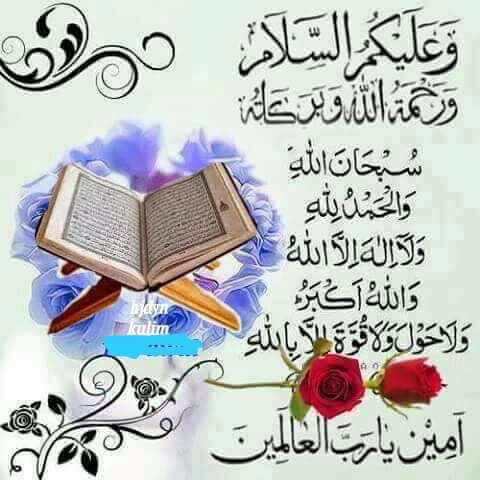 وَعَلَيْكُمُ السَّلَامُ
وَرَحْمَةُ اللهِ وَبَرَكَاتُهُ
سُبْحَانَ اللهِ
وَالْحَمْدُ لِلهِ
وَلَا إِلٰهَ إِلَّا اللهُ
وَاللهُ أَكْبَرُ
وَلَا حَوْلَ وَلَا قُوَّةَ إِلَّا بِاللهِ
آمِيْن يَا رَبَّ الْعَالَمِيْن
hjdyn
kulim